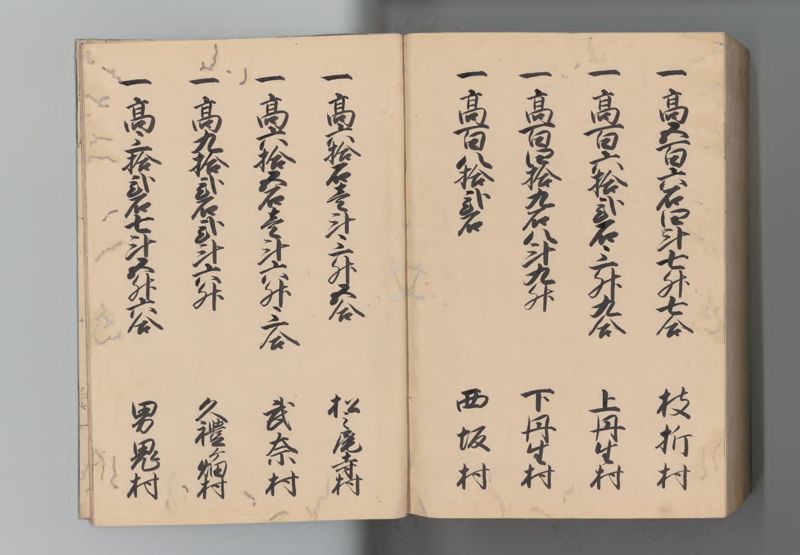 一高五百六石四斗七升七合 枝折村
一高百六拾弐石三升九合 上丹生村
一高百四拾九石八斗九升 下丹生村
一高百八拾弐石 西坂村
一高六拾石壱斗三升五合 松尾寺村
一高六拾五石壱斗六升三合 武奈村
一高九拾弐石弐斗六升 久禮畑村
一高三拾弐石七斗五升六合 男鬼村